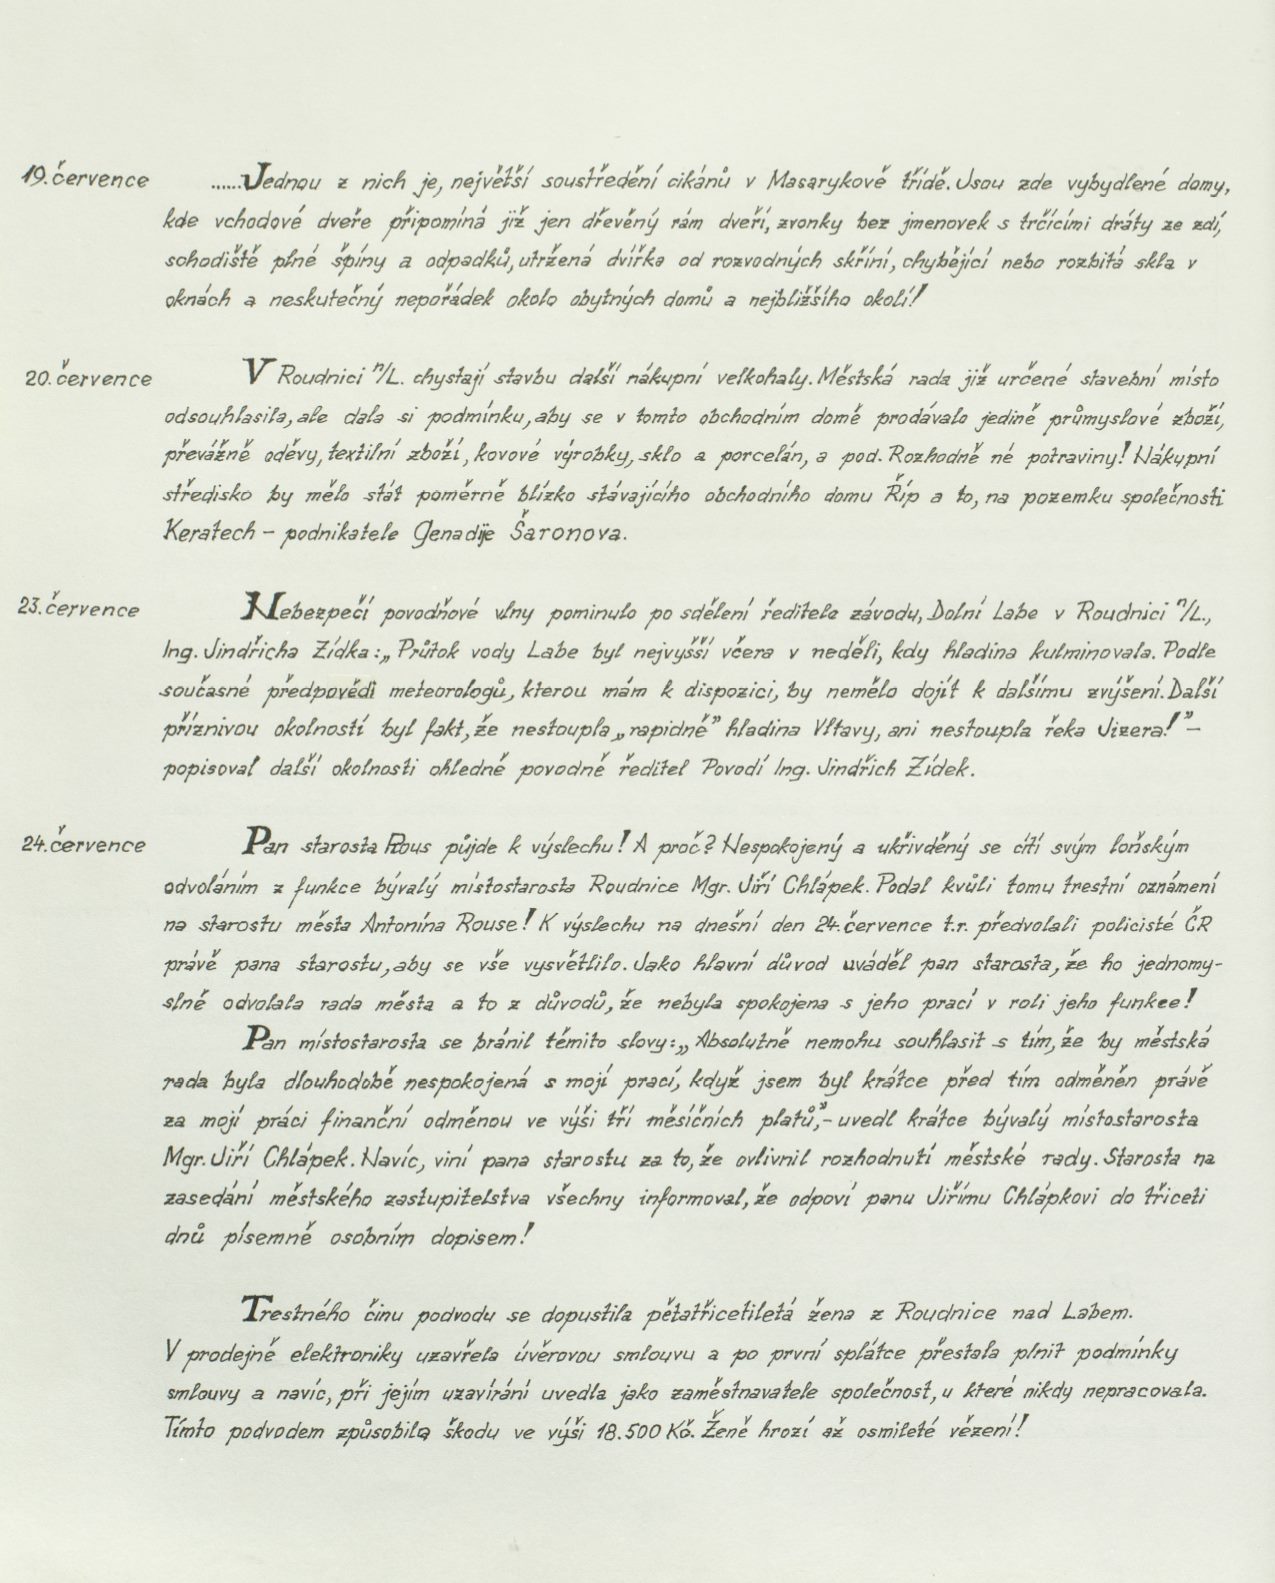 19. července ......Jednou z nich je, největší soustředění cikánů v Masarykově třídě. Jsou zde vybydlené domy,
kde vchodové dveře připomíná již jen dřevěný rám dveří, zvonky bez jmenovek s trčícími dráty ze zdí,
schodiště plné špíny a odpadků, utržená dvířka od rozvodných skříní, chybějící nebo rozbitá skla v
oknách a neskutečný nepořádek okolo obytných domů a nejbližšího okolí!
20. července V Roudnici n/L. chystají stavbu další nákupní velkohaly. Městská rada již určené stavební místo
odsouhlasila, ale dala si podmínku, aby se v tomto obchodním domě prodávalo jedině průmyslové zboží,
převážně oděvy, textilní zboží, kovové výrobky, sklo a porcelán, a pod. Rozhodně né potraviny! Nákupní
středisko by mělo stát poměrně blízko stávajícího obchodního domu Říp a to, na pozemku společnosti
Keratech - podnikatele Genadije Šaronova.
23. července Nebezpečí povodňové vlny pominulo po sdělení ředitele závodu, Dolní Labe v Roudnici n/L.,
Ing. Jindřicha Zídka: „Průtok vody Labe byl nejvyšší včera v neděli, kdy hladina kulminovala. Podle
současné předpovědi meteorologů, kterou mám k dispozici, by nemělo dojít k dalšímu zvýšení. Další
příznivou okolností byl fakt, že nestoupla „rapidně” hladina Vltavy, ani nestoupla řeka Jizera!” -
popisoval další okolnosti ohledně povodně ředitel Povodí Ing. Jindřich Zídek.
24. července Pan starosta Rous půjde k výslechu! A proč? Nespokojený a ukřivděný se cítí svým loňským
odvoláním z funkce bývalý místostarosta Roudnice Mgr. Jiří Chlápek. Podal kvůli tomu trestní oznámení
na starostu města Antonína Rouse! K výslechu na dnešní den 24. července t.r. předvolali policisté ČR
právě pana starostu, aby se vše vysvětlilo. Jako hlavní důvod uváděl pan starosta, že ho jednomy-
slně odvolala rada města a to z důvodů, že nebyla spokojena s jeho prací v roli jeho funkce!
Pan místostarosta se bránil těmito slovy: „Absolutně nemohu souhlasit s tím, že by městská
rada byla dlouhodobě nespokojená s mojí prací, když jsem byl krátce před tím odměněn právě
za mojí práci finanční odměnou ve výši tří měsíčních platů,” - uvedl krátce bývalý místostarosta
Mgr. Jiří Chlápek. Navíc, viní pana starostu za to, že ovlivnil rozhodnutí městské rady. Starosta na
zasedání městského zastupitelstva všechny informoval, že odpoví panu Jiřímu Chlápkovi do třiceti
dnů písemně osobním dopisem!
Trestného činu podvodu se dopustila pětatřicetiletá žena z Roudnice nad Labem.
V prodejně elektroniky uzavřela úvěrovou smlouvu a po první splátce přestala plnit podmínky
smlouvy a navíc, při jejím uzavírání uvedla jako zaměstnavatele společnost, u které nikdy nepracovala.
Tímto podvodem způsobila škodu ve výši 18.500 Kč. Ženě hrozí až osmileté vězení!